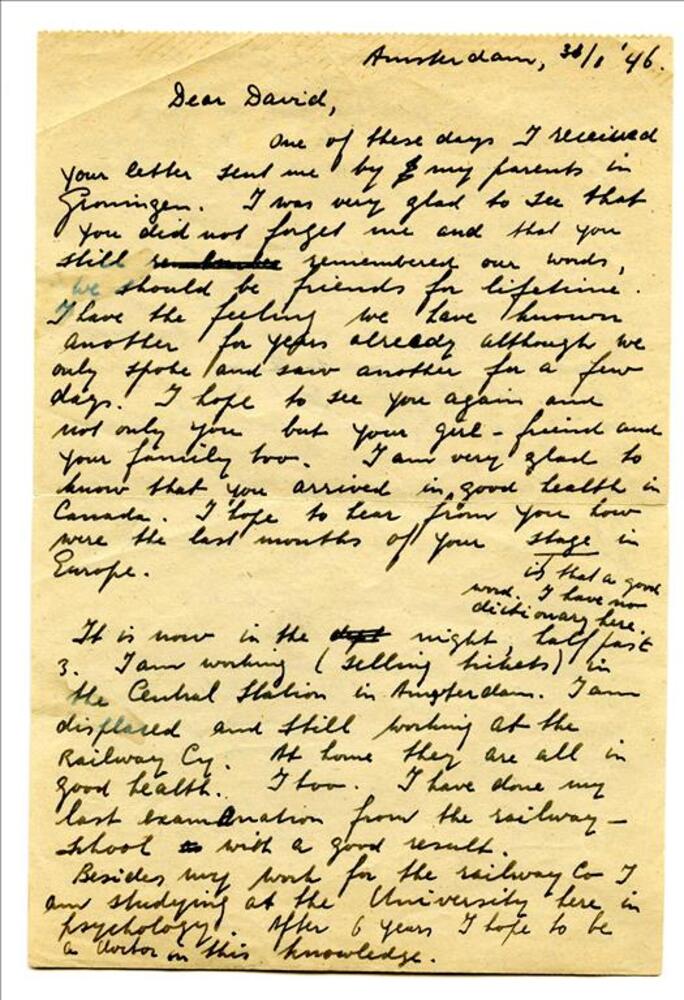 Amsterdam, 30/1 '46.
Dear David,
One of these days I received
your letter sent me by my parents in
Groningen. I was very glad to see that
you did not forget me and that you
still remembered our words,
we should be friends for lifetime.
I have the feeling we have known
another for years already although we
only spoke and saw another for a few
days. I hope to see you again and
not only you but your girl-friend and
your family too. I am very glad to
know that you arrived in good health in
Canada. I hope to hear from you how
were the last months of your stage in
Europe.
is that a good
word. I have no
dictionary here.
It is now in the night, half past
3. I am working (selling tickets) in
the Central Station in Amsterdam. I am
displaced and still working at the
Railway Cy. At home they are all in
good health. I too. I have done my
last examination from the railway-
school with a good result.
Besides my work for the railway Co I
am studying at the University here in
psychology. After 6 years I hope to be
a doctor in this knowledge.